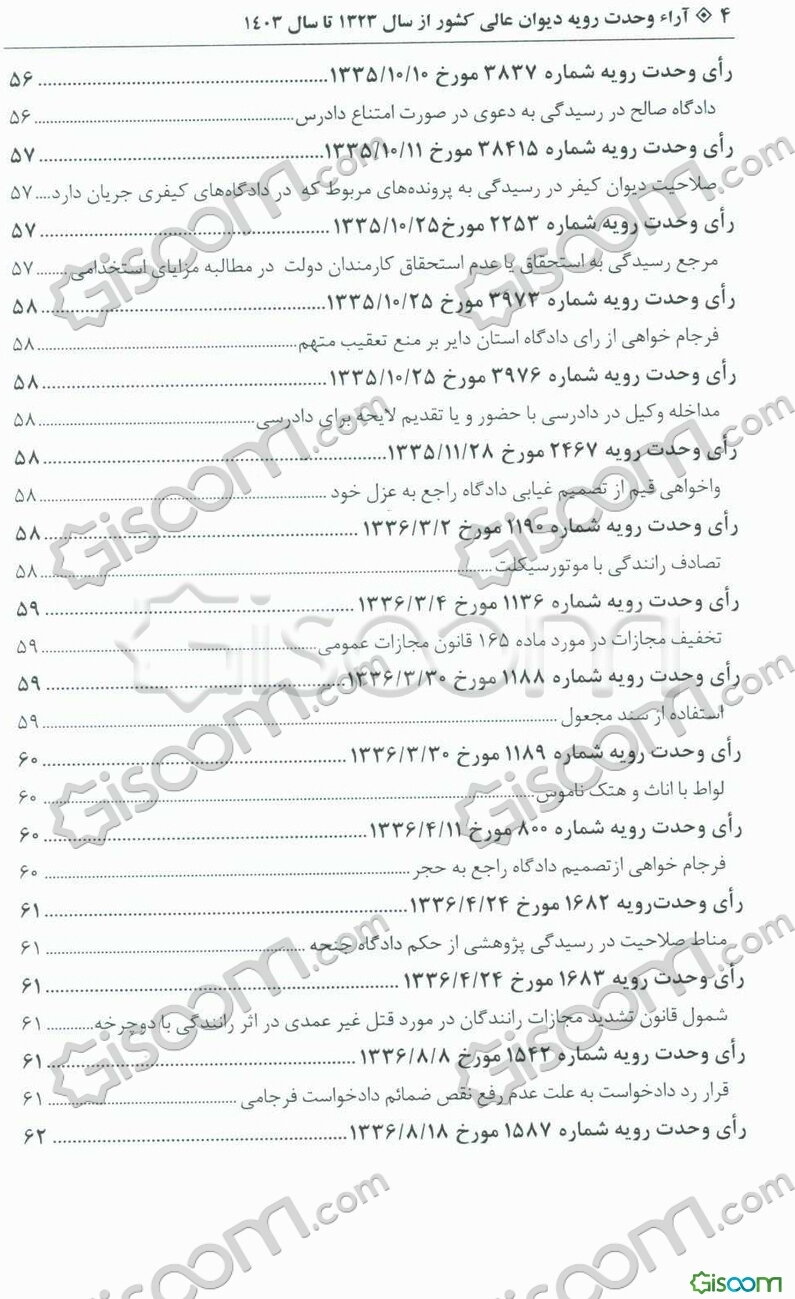 ۴ ❖ آراء وحدت رویه دیوان عالی کشور از سال ۱۳۲۳ تا سال ۱٤۰۳
رأی وحدت رویه شماره ۳۸۳۷ مورخ ۱۳۳۵/۱۰/۱۰ ........ ۵۶
دادگاه صالح در رسیدگی به دعوی در صورت امتناع دادرس ........ ۵۶
رأی وحدت رویه شماره ۳۸۴۱۵ مورخ ۱۳۳۵/۱۰/۱۱ ........ ۵۷
صلاحیت دیوان کیفر در رسیدگی به پرونده‌های مربوط که در دادگاه‌های کیفری جریان دارد .... ۵۷
رأی وحدت رویه شماره ۲۲۵۳ مورخ۱۳۳۵/۱۰/۲۵ ........ ۵۷
مرجع رسیدگی به استحقاق یا عدم استحقاق کارمندان دولت در مطالبه مزایای استخدامی ........ ۵۷
رأی وحدت رویه شماره ۳۹۷۳ مورخ ۱۳۳۵/۱۰/۲۵ ........ ۵۸
فرجام خواهی از رای دادگاه استان دایر بر منع تعقیب متهم ........ ۵۸
رأی وحدت رویه شماره ۳۹۷۶ مورخ ۱۳۳۵/۱۰/۲۵ ........ ۵۸
مداخله وکیل در دادرسی با حضور و یا تقدیم لایحه برای دادرسی ........ ۵۸
رأی وحدت رویه ۲۴۶۷ مورخ ۱۳۳۵/۱۱/۲۸ ........ ۵۸
واخواهی قیم از تصمیم غیابی دادگاه راجع به عزل خود ........ ۵۸
رأی وحدت رویه شماره ۱۱۹۰ مورخ ۱۳۳۶/۳/۲ ........ ۵۸
تصادف رانندگی با موتورسیکلت ........ ۵۸
رأی وحدت رویه شماره ۱۱۳۶ مورخ ۱۳۳۶/۳/۴ ........ ۵۹
تخفیف مجازات در مورد ماده ۱۶۵ قانون مجازات عمومی ........ ۵۹
رأی وحدت رویه شماره ۱۱۸۸ مورخ ۱۳۳۶/۳/۳۰ ........ ۵۹
استفاده از سند مجعول ........ ۵۹
رأی وحدت رویه شماره ۱۱۸۹ مورخ ۱۳۳۶/۳/۳۰ ........ ۶۰
لواط با اناث و هتک ناموس ........ ۶۰
رأی وحدت رویه شماره ۸۰۰ مورخ ۱۳۳۶/۴/۱۱ ........ ۶۰
فرجام خواهی ازتصمیم دادگاه راجع به حجر ........ ۶۰
رأی وحدت‌رویه ۱۶۸۲ مورخ ۱۳۳۶/۴/۲۴ ........ ۶۱
مناط صلاحیت در رسیدگی پژوهشی از حکم دادگاه جنحه ........ ۶۱
رأی وحدت رویه ۱۶۸۳ مورخ ۱۳۳۶/۴/۲۴ ........ ۶۱
شمول قانون تشدید مجازات رانندگان در مورد قتل غیر عمدی در اثر رانندگی با دوچرخه ........ ۶۱
رأی وحدت رویه شماره ۱۵۴۲ مورخ ۱۳۳۶/۸/۸ ........ ۶۱
قرار رد دادخواست به علت عدم رفع نقص ضمائم دادخواست فرجامی ........ ۶۱
رأی وحدت رویه شماره ۱۵۸۷ مورخ ۱۳۳۶/۸/۱۸ ........ ۶۲
Gisoom